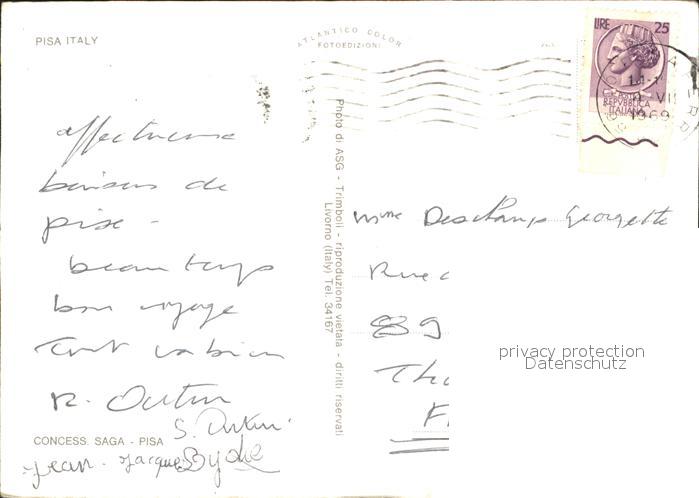 PISA ITALY
ATLANTICO COLOR
FOTOEDIZIONI
LIRE 25
REPVBBLICA
ITALIANA
1969
affectueux
baisers de
pise -
beau temps
bon voyage
Tout va bien
R.
S.
Jean-Jacques
CONCESS. SAGA - PISA
Photo di ASG - Trimboli - riproduzione vietata - diritti riservati
Livorno (Italy) Tel. 34167
Mme Deschamps Georgette
Rue
89
privacy protection
Datenschutz